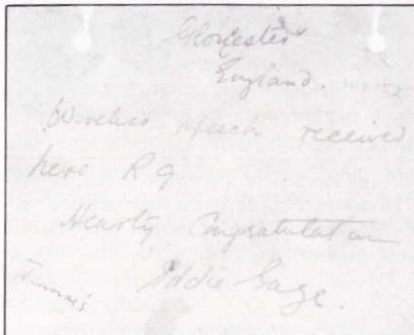 Gloucester
England.
Wireless speech received
here R9
Hearty Congratulation
Eddie Gage.